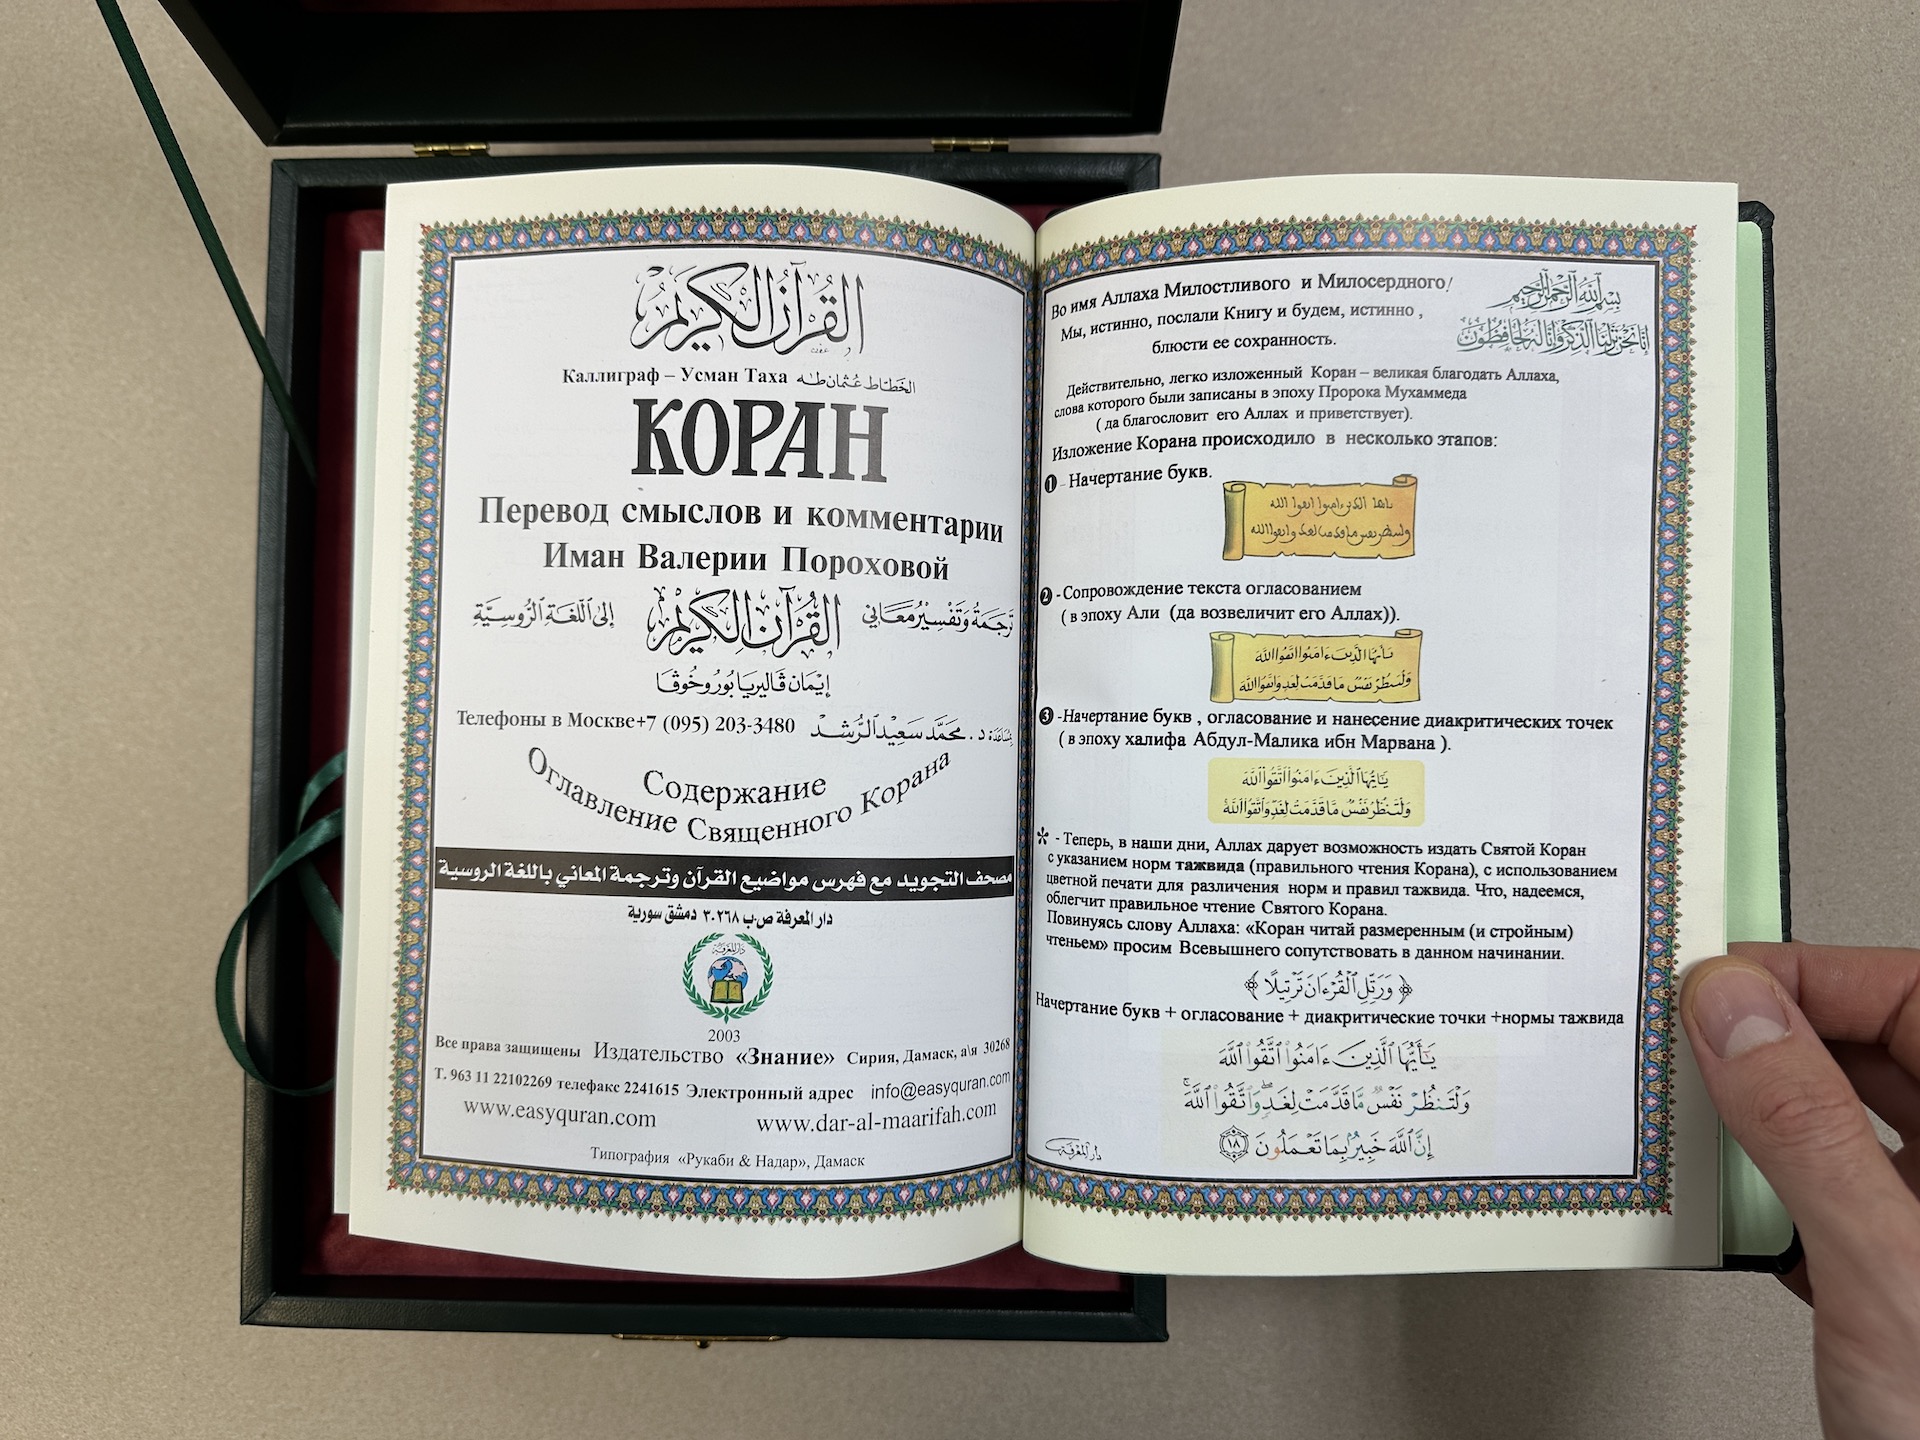 القرآن الكريم
Каллиграф – Усман Таха الخطاط عثمان طه
КОРАН
Перевод смыслов и комментарии
Иман Валерии Пороховой
ترجمة وتفسير معاني القرآن الكريم إلى اللغة الروسية
إيمان ڤاليريا بوروخوڤا
Телефоны в Москве+7 (095) 203-3480 بمساعدة د. محمد سعيد الرشد
Содержание
Оглавление Священного Корана
مصحف التجويد مع فهرس مواضيع القرآن وترجمة المعاني باللغة الروسية
دار المعرفة ص.ب ٣٠٢٦٨ دمشق سورية
دار المعرفة
2003
Все права защищены Издательство «Знание» Сирия, Дамаск, а\я 30268
Т. 963 11 22102269 телефакс 2241615 Электронный адрес info@easyquran.com
www.easyquran.com www.dar-al-maarifah.com
Типография «Рукаби & Надар», Дамаск
Во имя Аллаха Милостливого и Милосердного!
بسم الله الرحمن الرحيم
Мы, истинно, послали Книгу и будем, истинно ,
блюсти ее сохранность.
إنا نحن نزلنا الذكر وإنا له لحافظون
Действительно, легко изложенный Коран – великая благодать Аллаха,
слова которого были записаны в эпоху Пророка Мухаммеда
( да благословит его Аллах и приветствует).
Изложение Корана происходило в несколько этапов:
1 - Начертание букв.
2 - Сопровождение текста огласованием
( в эпоху Али (да возвеличит его Аллах)).
3 -Начертание букв , огласование и нанесение диакритических точек
( в эпоху халифа Абдул-Малика ибн Марвана ).
يَٰأَيُّهَا الَّذِينَ ءَامَنُوا اتَّقُوا اللَّهَ
وَلْتَنظُرْ نَفْسٌ مَّا قَدَّمَتْ لِغَدٍ وَاتَّقُوا اللَّهَ
* - Теперь, в наши дни, Аллах дарует возможность издать Святой Коран
с указанием норм тажвида (правильного чтения Корана), с использованием
цветной печати для различения норм и правил тажвида. Что, надеемся,
облегчит правильное чтение Святого Корана.
Повинуясь слову Аллаха: «Коран читай размеренным (и стройным)
чтеньем» просим Всевышнего сопутствовать в данном начинании.
﴿ وَرَتِّلِ ٱلْقُرْءَانَ تَرْتِيلًا ﴾
Начертание букв + огласование + диакритические точки +нормы тажвида
يَٰٓأَيُّهَا ٱلَّذِينَ ءَامَنُوا۟ ٱتَّقُوا۟ ٱللَّهَ
وَلْتَنظُرْ نَفْسٌ مَّا قَدَّمَتْ لِغَدٍ ۖ وَٱتَّقُوا۟ ٱللَّهَ ۚ
إِنَّ ٱللَّهَ خَبِيرٌۢ بِمَا تَعْمَلُونَ ١٨
دار المعرفة